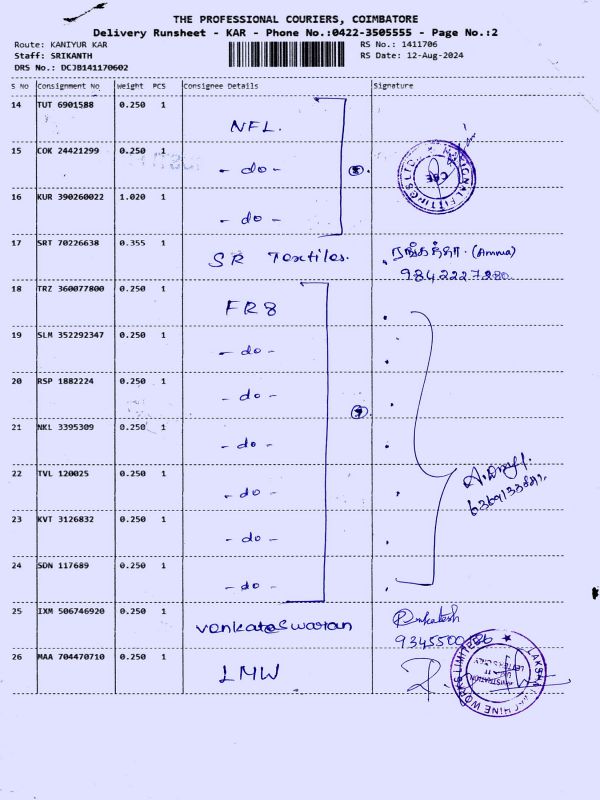 THE PROFESSIONAL COURIERS, COIMBATORE
Delivery Runsheet - KAR - Phone No.:0422-3505555 - Page No.:2
Route: KANIYUR KAR
RS No.: 1411706
Staff: SRIKANTH
RS Date: 12-Aug-2024
DRS No.: DCJB141170602
S No Consignment No Weight PCS Consignee Details Signature
14 TUT 6901588 0.250 1 NFL.
15 COK 24421299 0.250 1 - do -
16 KUR 390260022 1.020 1 - do -
17 SRT 70226638 0.355 1 SR Textiles. (Amma)
9842227280
18 TRZ 360077800 0.250 1 FR8
19 SLM 352292347 0.250 1 - do -
20 RSP 1882224 0.250 1 - do -
21 NKL 3395309 0.250 1 - do -
22 TVL 120025 0.250 1 - do -
23 KVT 3126832 0.250 1 - do -
24 SDN 117689 0.250 1 - do -
25 IXM 506746920 0.250 1 Venkateswaran
26 MAA 704470710 0.250 1 LMW